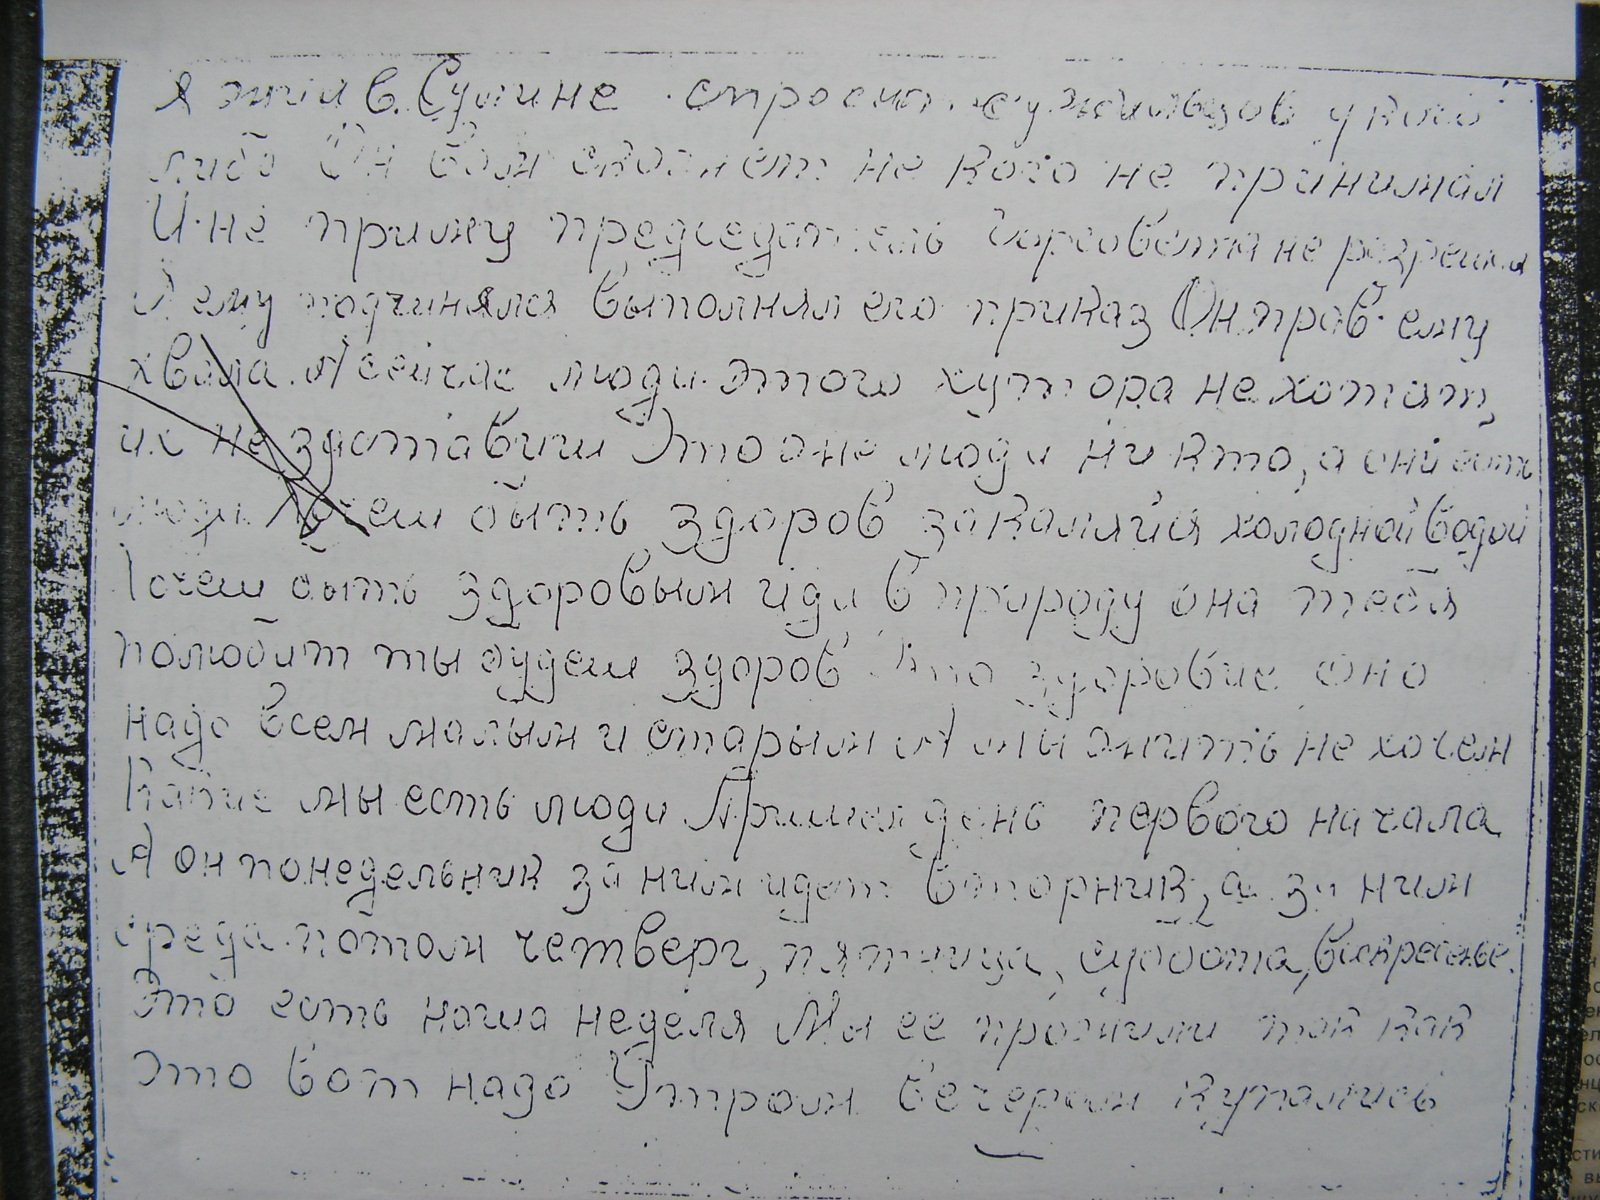 Я жил в Сулине спросит у жильцов у кого
либо Он вам скажет не кого не принимал
И не приму председатель Горсовета не разрешил
Я ему подчинялся выполнял его приказ Он прав ему
хвала А сейчас люди этого хутора не хотят,
их не заставиш Это оне люди ни кто, а они есть
люди Хочеш быть здоров закаляйся холодной водой
Хочеш быть здоровым иди в природу она тебя
полюбит ты будеш здоров Это здоровие оно
надо всем малым и старым А мы жить не хочем
Какие мы есть люди Пришел день первого начала
А он понедельник за ним идет вторник, а за ним
среда потом четверг, пятница, субота, воскресенье.
Это есть наша неделя Мы ее прожили так как
это вот надо Утром вечером купались